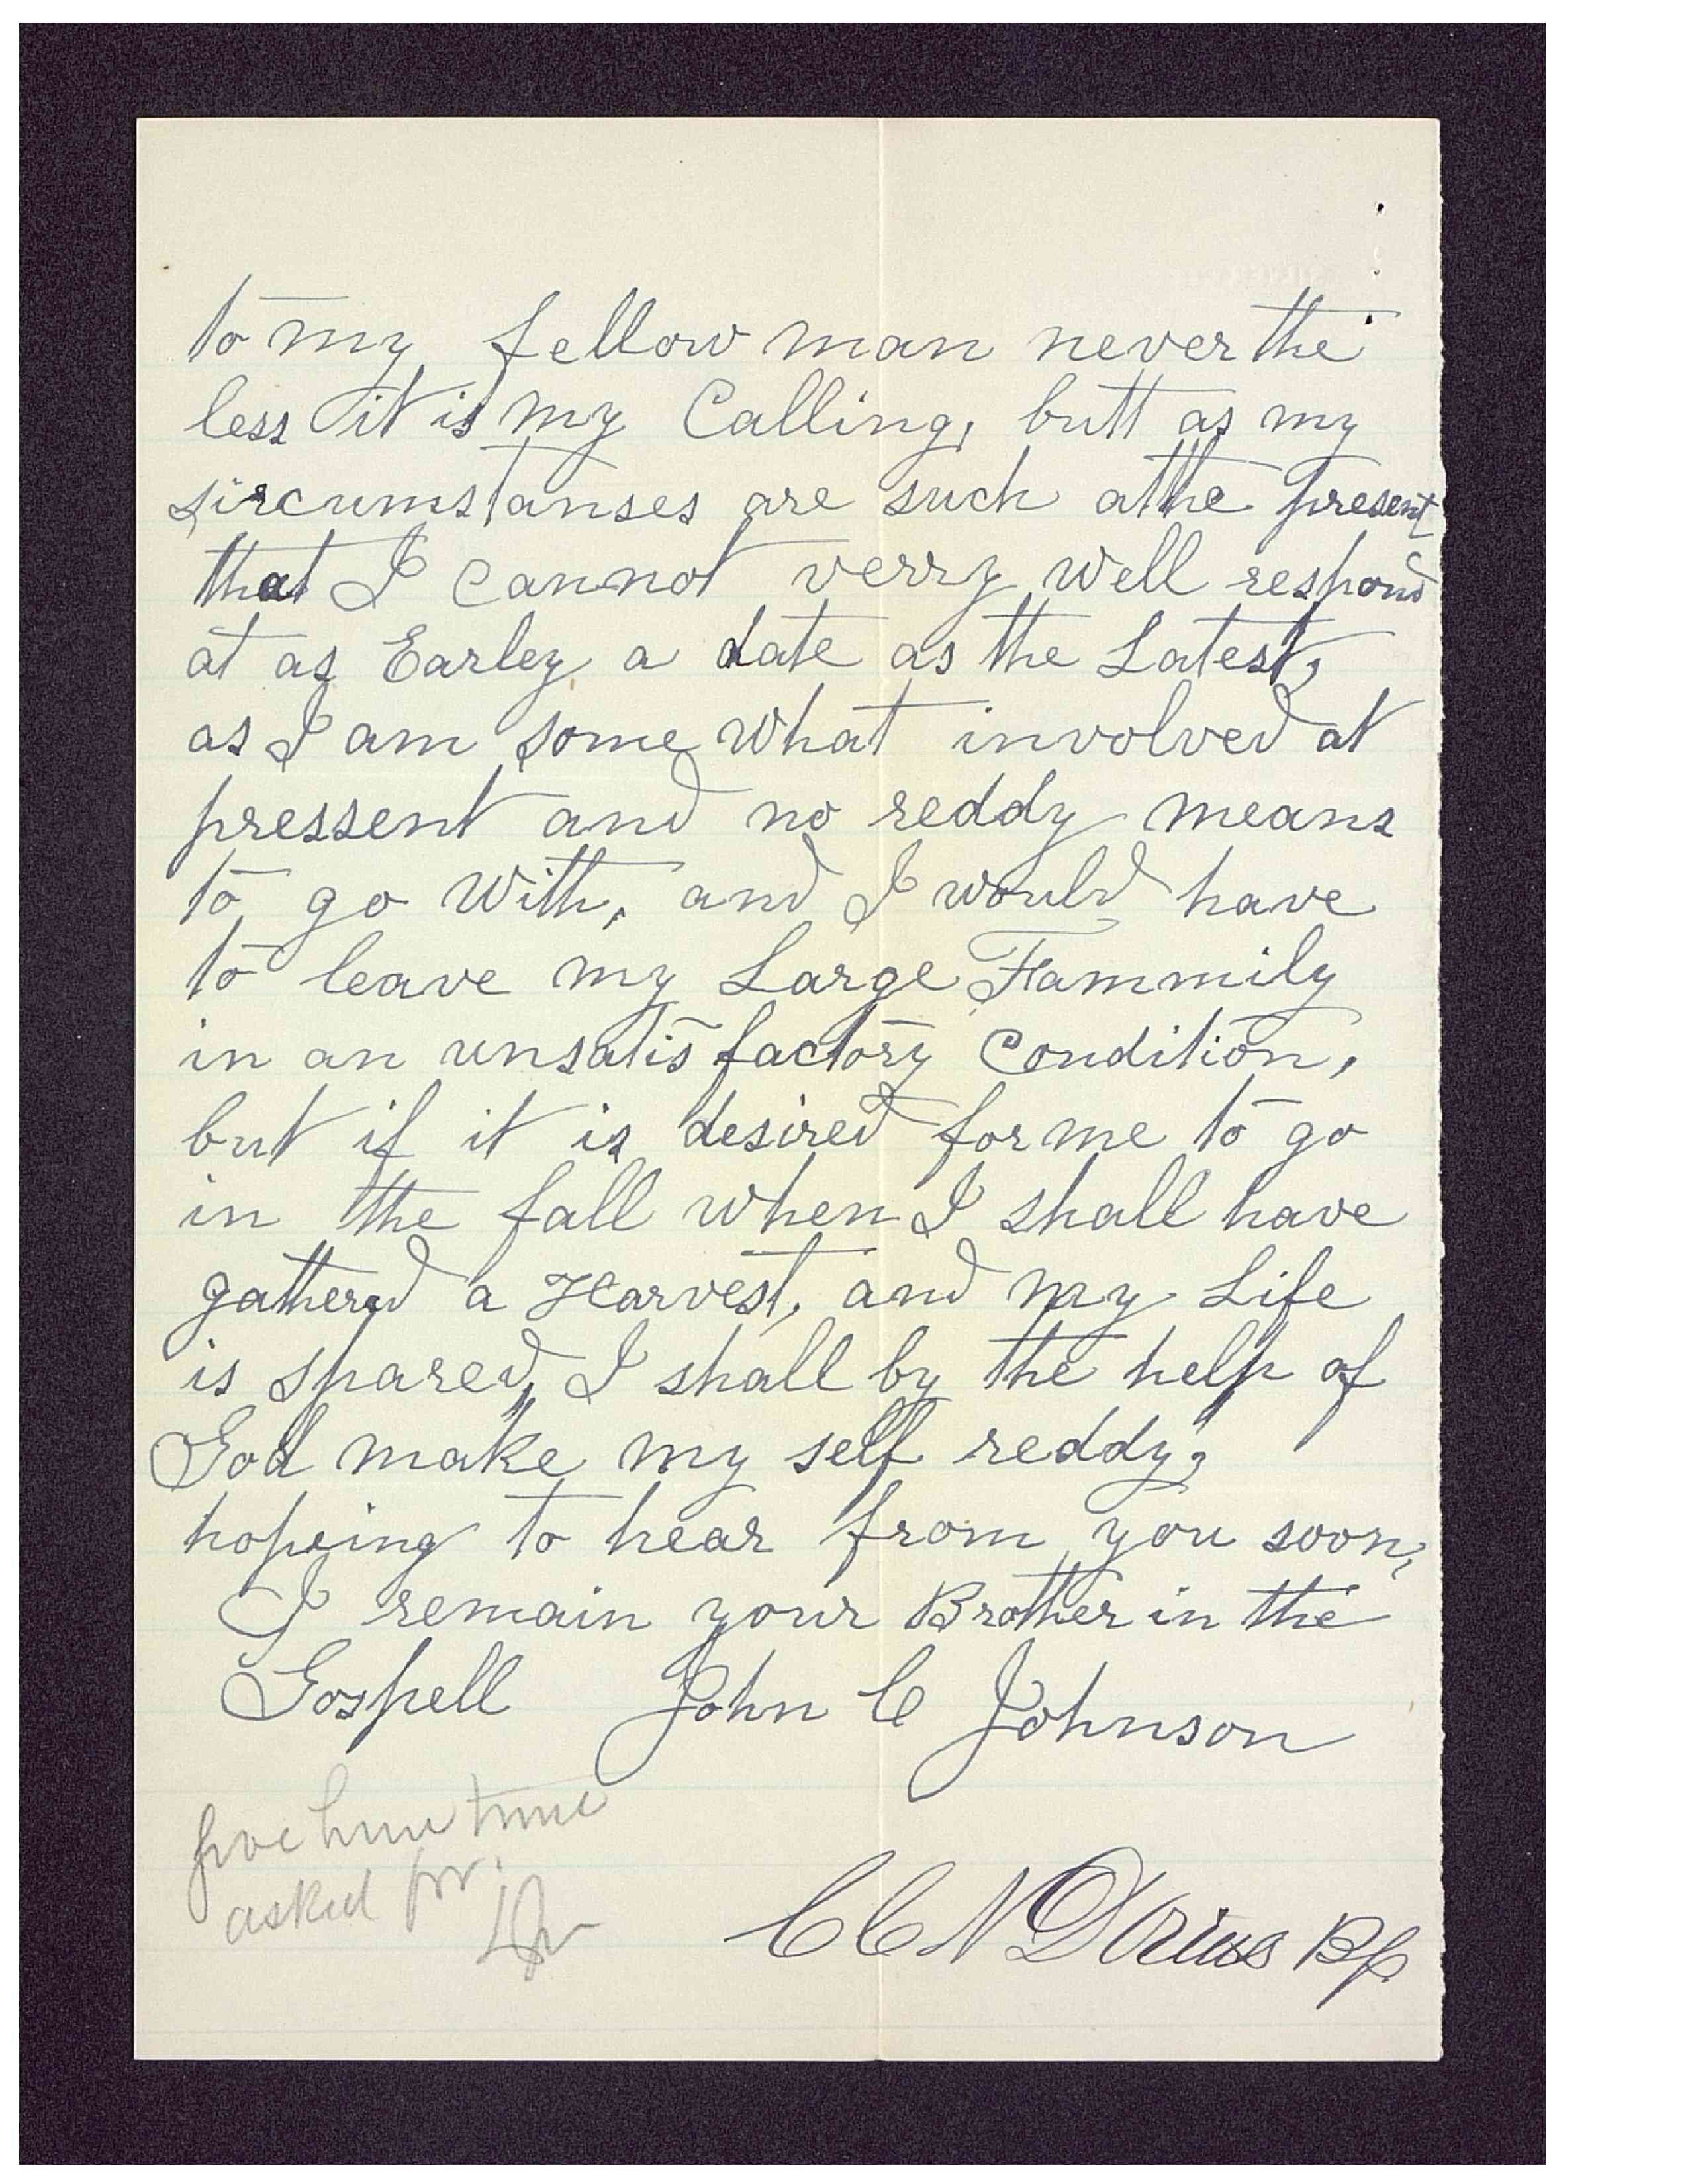 to my fellow man never the
less it is my Calling, butt as my
sircumstanses are such atthe present
that I cannot verry well respond
at as Earley a date as the Latest,
as I am some what involved at
pressent and no reddy means
to go with, and I would have
to leave my Large Fammily
in an unsatisfactory Condition,
but if it is desired for me to go
in the fall when I shall have
gathered a Harvest, and my Life
is spared, I shall by the help of
God make my self reddy,
hopeing to hear from you soon,
I remain your Brother in the
Gospell John C Johnson
give him time
asked for.
C C N Dorius Bp